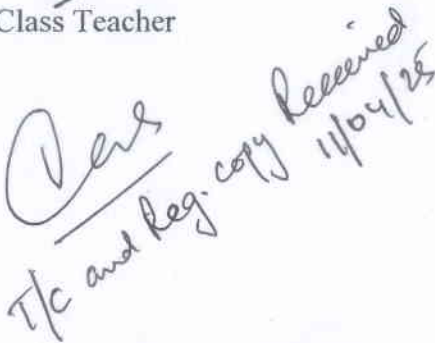 Class Teacher
T/C and Reg. copy Received
11/04/25